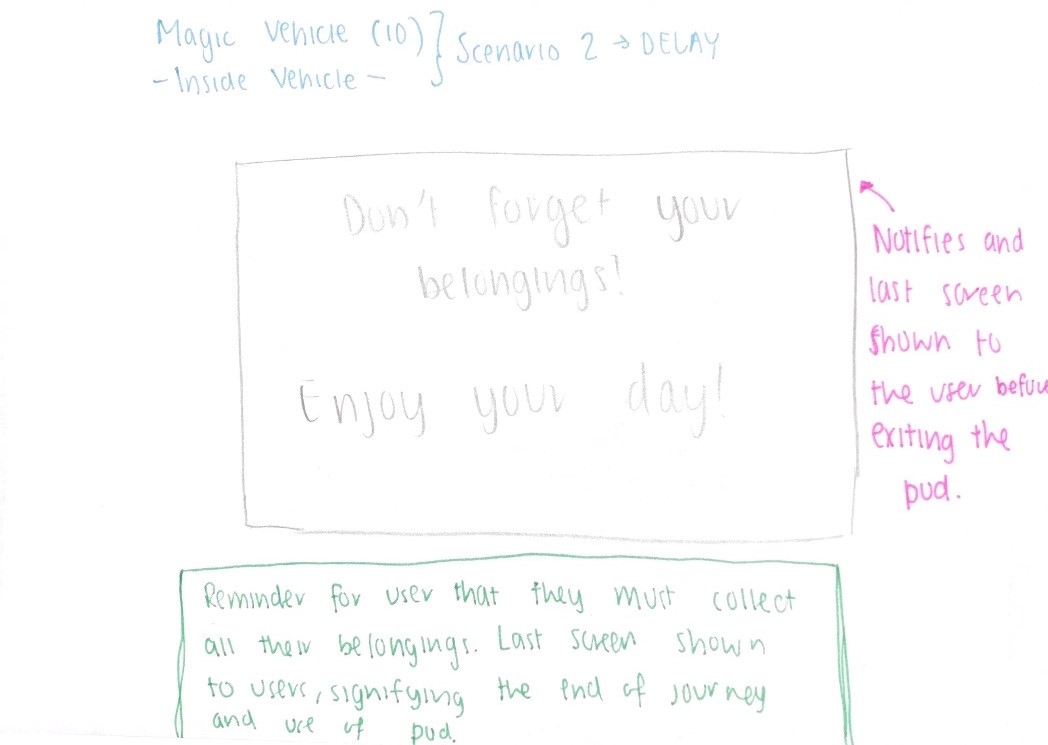 Magic Vehicle (10)
-Inside Vehicle-
Scenario 2 → DELAY
Don't forget your
belongings!
Enjoy your day!
Notifies and
last screen
shown to
the user before
exiting the
pod.
Reminder for user that they must collect
all their belongings. Last screen shown
to users, signifying the end of journey
and use of pod.